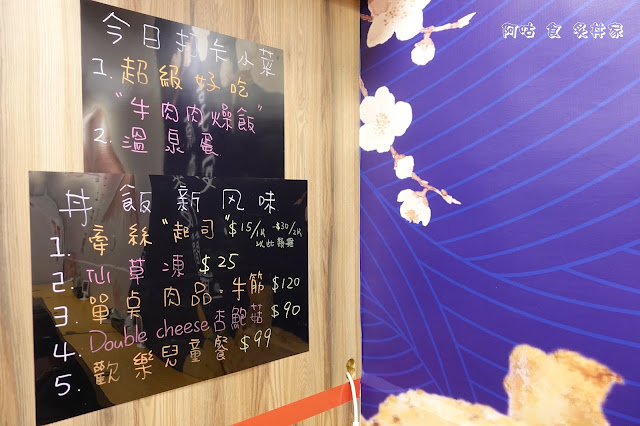 今日打卡小菜
1. 超級好吃
"牛肉肉燥飯"
2. 溫泉蛋
丼飯新風味
1. 牽絲"起司" $15/1片 -$30/2片
2. 仙草凍 $25
3. 單桌肉品.牛筋 $120
4. Double cheese 杏鮑菇 $90
5. 歡樂兒童餐 $99
阿咕 食 炙丼家